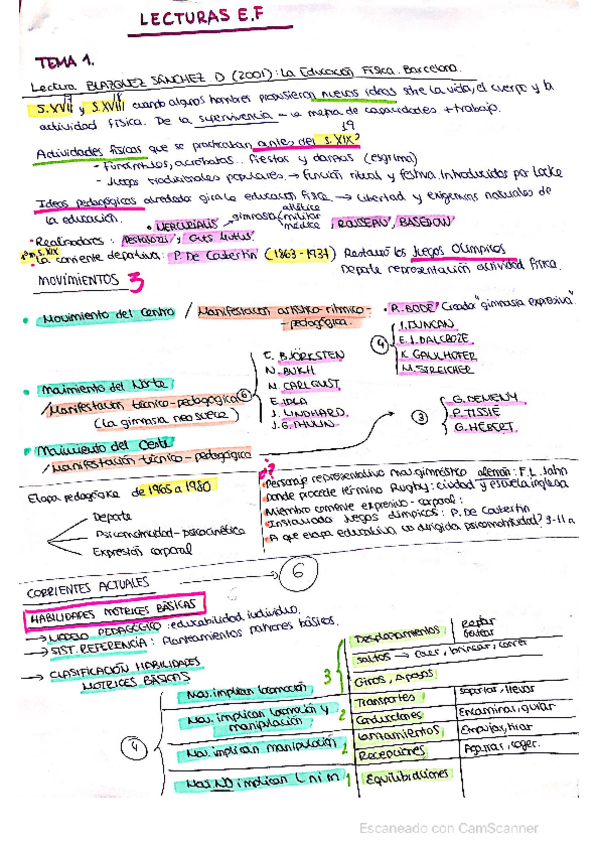 LECTURAS E.F
TEMA 1.
Lectura BLÁZQUEZ SÁNCHEZ D (2001): La Educación Física. Barcelona.
S.XVII y S.XVIII cuando algunos hombres propusieron nuevas ideas sobre la vida, el cuerpo y la
actividad física. De la supervivencia a la mejora de capacidades + trabajo.
19
Actividades físicas que se practicaban antes del S.XIX?
- Funámbulos, acróbatas.. fiestas y danzas (esgrima)
- Juegos tradicionales populares. → función ritual y festiva. Introducidos por Locke
Ideas pedagógicas alrededor gira la educación física. → libertad y exigencias naturales de
la educación.
• MERCURIALIS → gimnasia atlética militar médica, ROUSSEAU, BASEDOW
• Realizadores: Pestalozzi y Guts Muths
fin S.XIX
• La corriente deportiva: P. De Coubertin (1863-1937) Restauró los Juegos Olímpicos
Deporte representación actividad física.
MOVIMIENTOS 3
• Movimiento del Centro / Manifestación artístico-rítmico-
pedagógica.
• R. BODE Creador "gimnasia expresiva"
4
I. DUNCAN
E. J. DALCROZE
K. GAULHOFER
M. STREICHER
• Movimiento del Norte
/ Manifestación técnico-pedagógica
(La gimnasia neosueca)
6
E. BJÖRKSTEN
N. BUKH
M. CARLQUIST
E. IDLA
J. LINDHARD
J.G. THULIN
• Movimiento del Oeste
/ Manifestación técnico-pedagógica
3
G. DEMENY
P. TISSIE
G. HEBERT
Etapa pedagógica de 1965 a 1980
Deporte
Psicomotricidad - psicocinética
Expresión corporal
¿?
• Personaje representativo mov. gimnástico alemán: F.L. Jahn
• Donde procede término Rugby: ciudad y escuela inglesa
• Miembro corriente expresivo-corporal:
• Instaurador Juegos olímpicos: P. De Coubertin
• A que etapa educativa va dirigida psicomotricidad?
CORRIENTES ACTUALES → 6
HABILIDADES MOTRICES BÁSICAS
→ MODELO PEDAGÓGICO: educabilidad individuo.
→ SIST. REFERENCIA: Planteamientos patrones básicos.
→ CLASIFICACIÓN HABILIDADES
MOTRICES BÁSICAS
4
Nos. implican locomoción 3
Desplazamientos
Reptar
saltos → Caer, brincar, correr
Giros, Apoyos
Nos. implican locomoción y
manipulación 2
Transportes
Soportar, llevar
Conducciones
Encaminar, guiar
Nos. implican manipulación 2
Lanzamientos
Empujar, tirar
Recepciones
Agarrar, coger.
Nos. NO implican L ni M 1
Equilibraciones
Escaneado con CamScanner